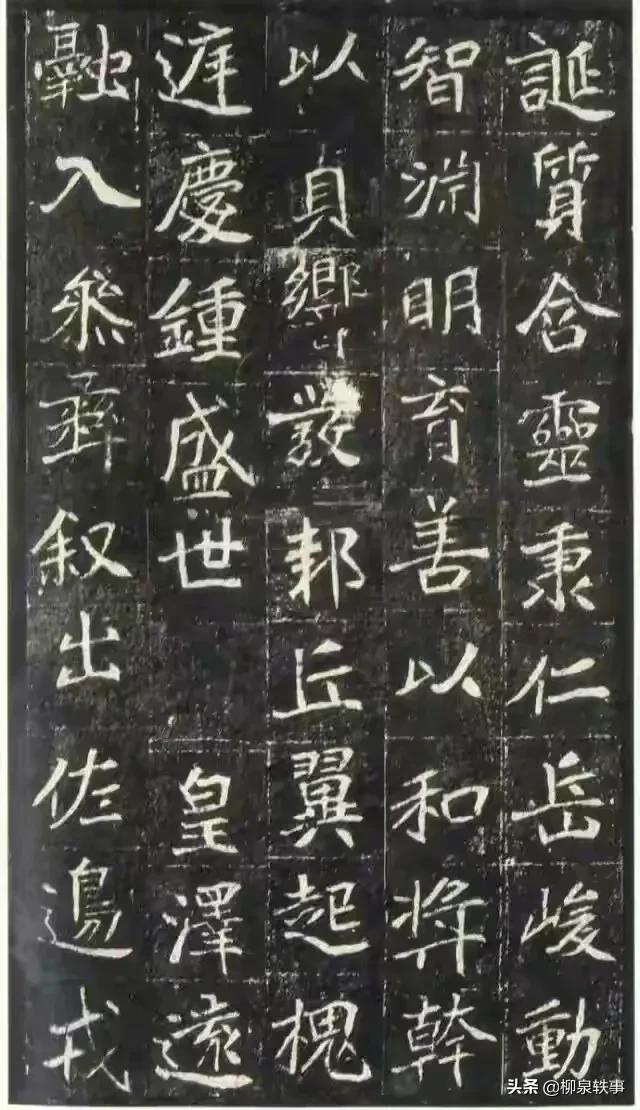 誕質含靈秉仁岳峻動
智淵明育善以和奬幹
以貞響發邦丘翼起槐
庭慶鍾盛世 皇澤遠
融入叅彝叙出佐邊戎
头条 @柳泉轶事